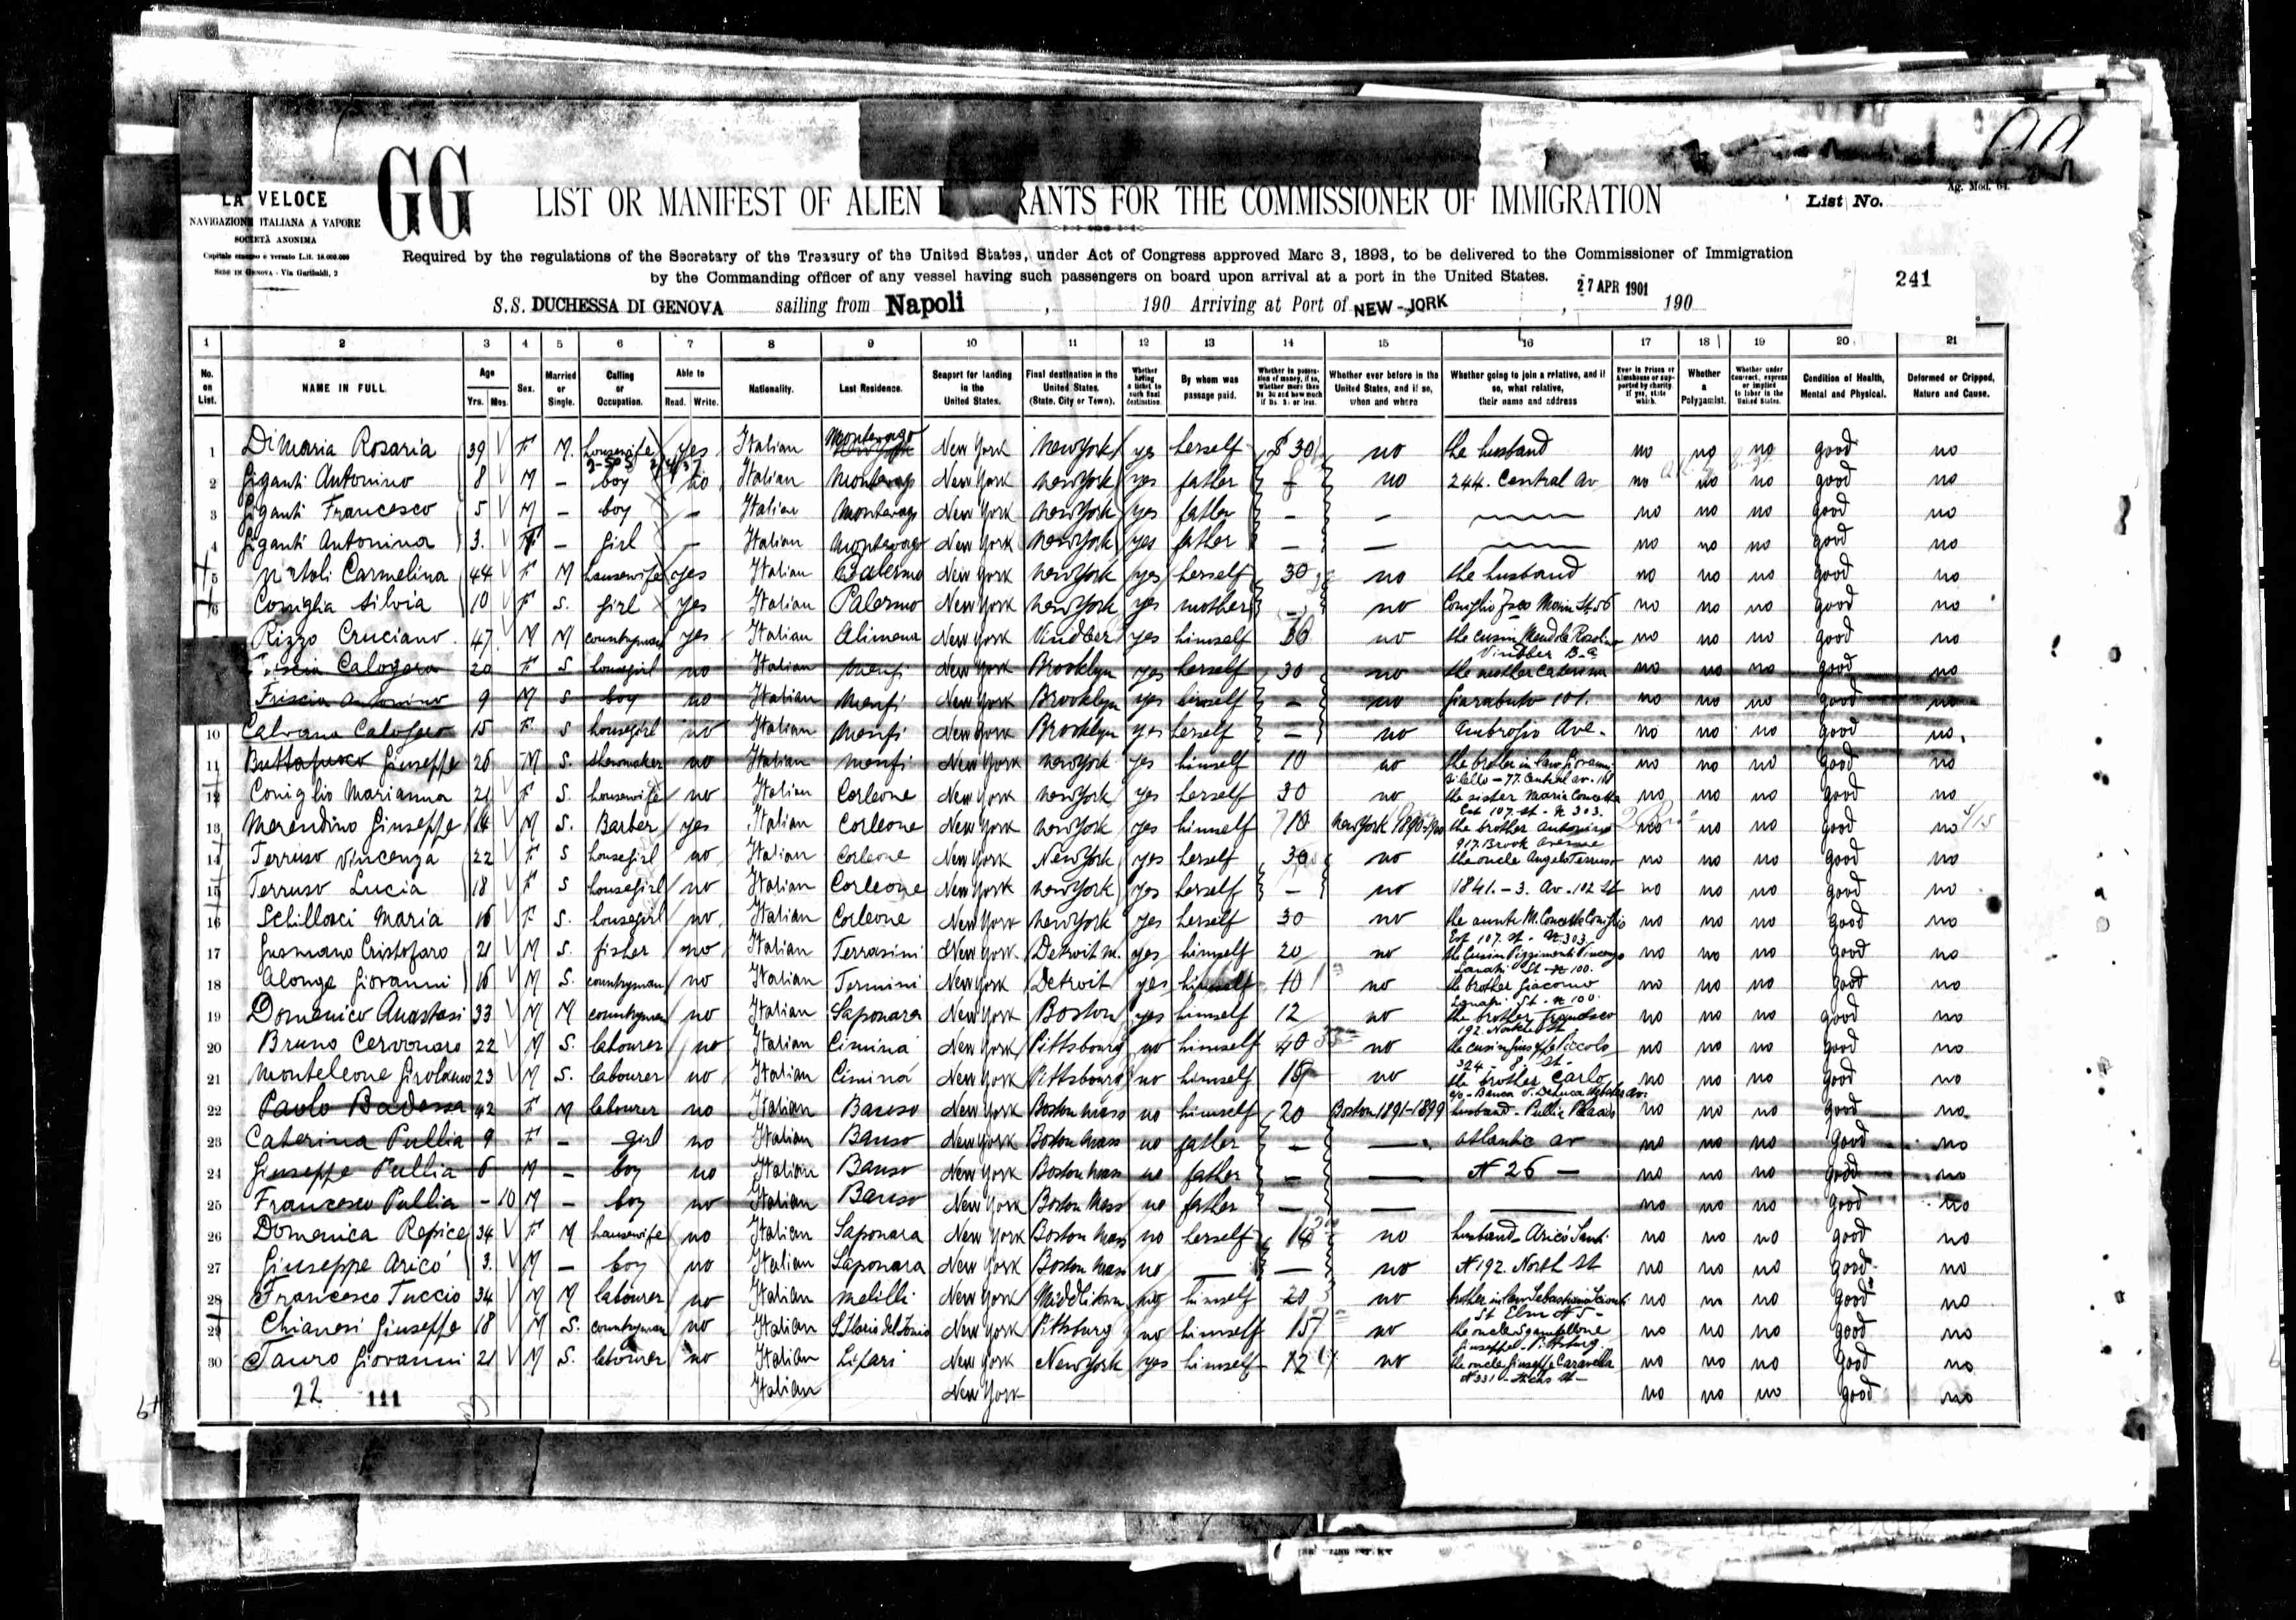 LA VELOCE
NAVIGAZIONE ITALIANA A VAPORE
SOCIETÀ ANONIMA
Capitale emesso e versato L.it.
SEDE IN GENOVA - Via Garibaldi, 2
GG
LIST OR MANIFEST OF ALIEN RANTS FOR THE COMMISSIONER OF IMMIGRATION
Ag. Mod. 64.
List No.
Required by the regulations of the Secretary of the Treasury of the United States, under Act of Congress approved Marc 3, 1893, to be delivered to the Commissioner of Immigration
by the Commanding officer of any vessel having such passengers on board upon arrival at a port in the United States.
241
S.S. DUCHESSA DI GENOVA sailing from Napoli , 190 Arriving at Port of NEW-JORK , 27 APR 1901 190
1 2 3 4 5 6 7 8 9 10 11 12 13 14 15 16 17 18 19 20 21
No. on List. NAME IN FULL. Age Yrs. Mos. Sex. Married or Single. Calling or Occupation. Able to Read. Write. Nationality. Last Residence. Seaport for landing in the United States. Final destination in the United States. (State, City or Town). Whether having a ticket to such final destination. By whom was passage paid. Whether in possession of money, if so, whether more than Ds 30 and how much if Ds 30 or less. Whether ever before in the United States, and if so, when and where Whether going to join a relative, and if so, what relative, their name and address Ever in Prison or Almshouse or supported by charity If yes, state which. Whether a Polygamist. Whether under Contract, express or implied to labor in the United States. Condition of Health, Mental and Physical. Deformed or Cripped, Nature and Cause.
1 Di Maria Rosaria 39 F M. housewife yes Italian Montevago New York New York yes herself $ 30 no the husband no no no good no
2 Giganti Antonino 8 M - boy no Italian Montevago New York New York yes father - no 244. Central av no no no good no
3 Giganti Francesco 5 M - boy - Italian Montevago New York New York yes father - - no no no good no
4 Giganti Antonina 3. F - girl - Italian Montevago New York New York yes father - - no no no good no
5 Carmelina 44 F M housewife yes Italian Palermo New York New York yes herself 30 no the husband no no no good no
6 Coniglia Silvia 10 F S. girl yes Italian Palermo New York New York yes mother - no Coniglio no no no good no
Rizzo Cruciano 47 M M countryman yes Italian Alimena New York Vindber yes himself 30 no the cusin Mendola Rosolino no no no good no
Calogera 20 F S housegirl no Italian Menfi New York Brooklyn yes herself 30 no the mother Caterina no no no good no
Friscia Antonino 9 M S boy no Italian Menfi New York Brooklyn yes himself - no Giarabuto 101. no no no good no
10 Calogero 15 F S housegirl no Italian Menfi New York Brooklyn yes herself - no Ambrosio Ave. no no no good no.
11 Buttafuoco Giuseppe 26 M S. shoemaker no Italian Menfi New York New York yes himself 10 no the brother in law Giovanni no no no good no
12 Coniglio Marianna 21 F S. housewife no Italian Corleone New York New York yes herself 30 no the sister Maria Concetta no no no good no
Est 107. St - N 303.
13 Merendino Giuseppe 14 M S. Barber yes Italian Corleone New York New York yes himself 10 New York 1890-1900 the brother Antonino no no no good no
917. Brook Avenue
14 Terruso Vincenza 22 F S housegirl no Italian Corleone New York New York yes herself 30 no the oncle Angelo Terruso no no no good no
15 Terruso Lucia 18 F S housegirl no Italian Corleone New York New York yes herself - no 1841. - 3. Av. - 102 St no no no good no
16 Schillaci Maria 16 F S. housegirl no Italian Corleone New York New York yes herself 30 no the aunte M. Concetta Coniglio no no no good no
Est 107. St - N 303.
17 Gusmano Cristofaro 21 M S. fisher no Italian Terrasini New York Detroit M. yes himself 20 no the Cusin Pizzimenti Vincenzo no no no good no
18 Alonge Giovanni 16 M S. countryman no Italian Termini New York Detroit yes himself 10 no the brother Giacomo no no no good no
19 Domenico Anastasi 33 M M countryman no Italian Saponara New York Boston yes himself 12 no the brother Francesco no no no good no
20 Bruno 22 M S. labourer no Italian Ciminà New York Pittsbourg no himself 40 no the cusin Giuseppe Piccolo no no no good no
21 Monteleone Girolamo 23 M S. labourer no Italian Ciminà New York Pittsbourg no himself 15 no the brother Carlo no no no good no
22 Paola Badessa 42 F M labourer no Italian Bauso New York Boston Mass no himself 20 Boston 1891-1899 husband - Pullia no no no good no
23 Caterina Pullia 9 F - girl no Italian Bauso New York Boston Mass no father - - atlantic av no no no good no
24 Giuseppe Pullia 6 M - boy no Italian Bauso New York Boston Mass no father - - N 26 - no no no good no
25 Francesco Pullia - 10 M - boy no Italian Bauso New York Boston Mass no father - - - no no no good no
26 Domenica Repice 34 F M housewife no Italian Saponara New York Boston Mass no herself no husband - Aricò Santi no no no good no
27 Giuseppe Aricò 3. M - boy no Italian Saponara New York Boston Mass no - - no N 192. North St no no no good no
28 Francesco Tuccio 34 M M labourer no Italian Melilli New York Middletown no himself 20 no brother in law Sebastiano no no no good no
St Elm N 5 -
29 Chianesi Giuseppe 18 M S. countryman no Italian S. Ilario del Jonio New York Pittsburg no himself 15 no the oncle no no no good no
Giuseppe - Pittsburg
30 Tauro Giovanni 21 M S. labourer no Italian Lipari New York New York yes himself 12 no the oncle Giuseppe Caravella no no no good no
22 111 Italian New York no no no good no